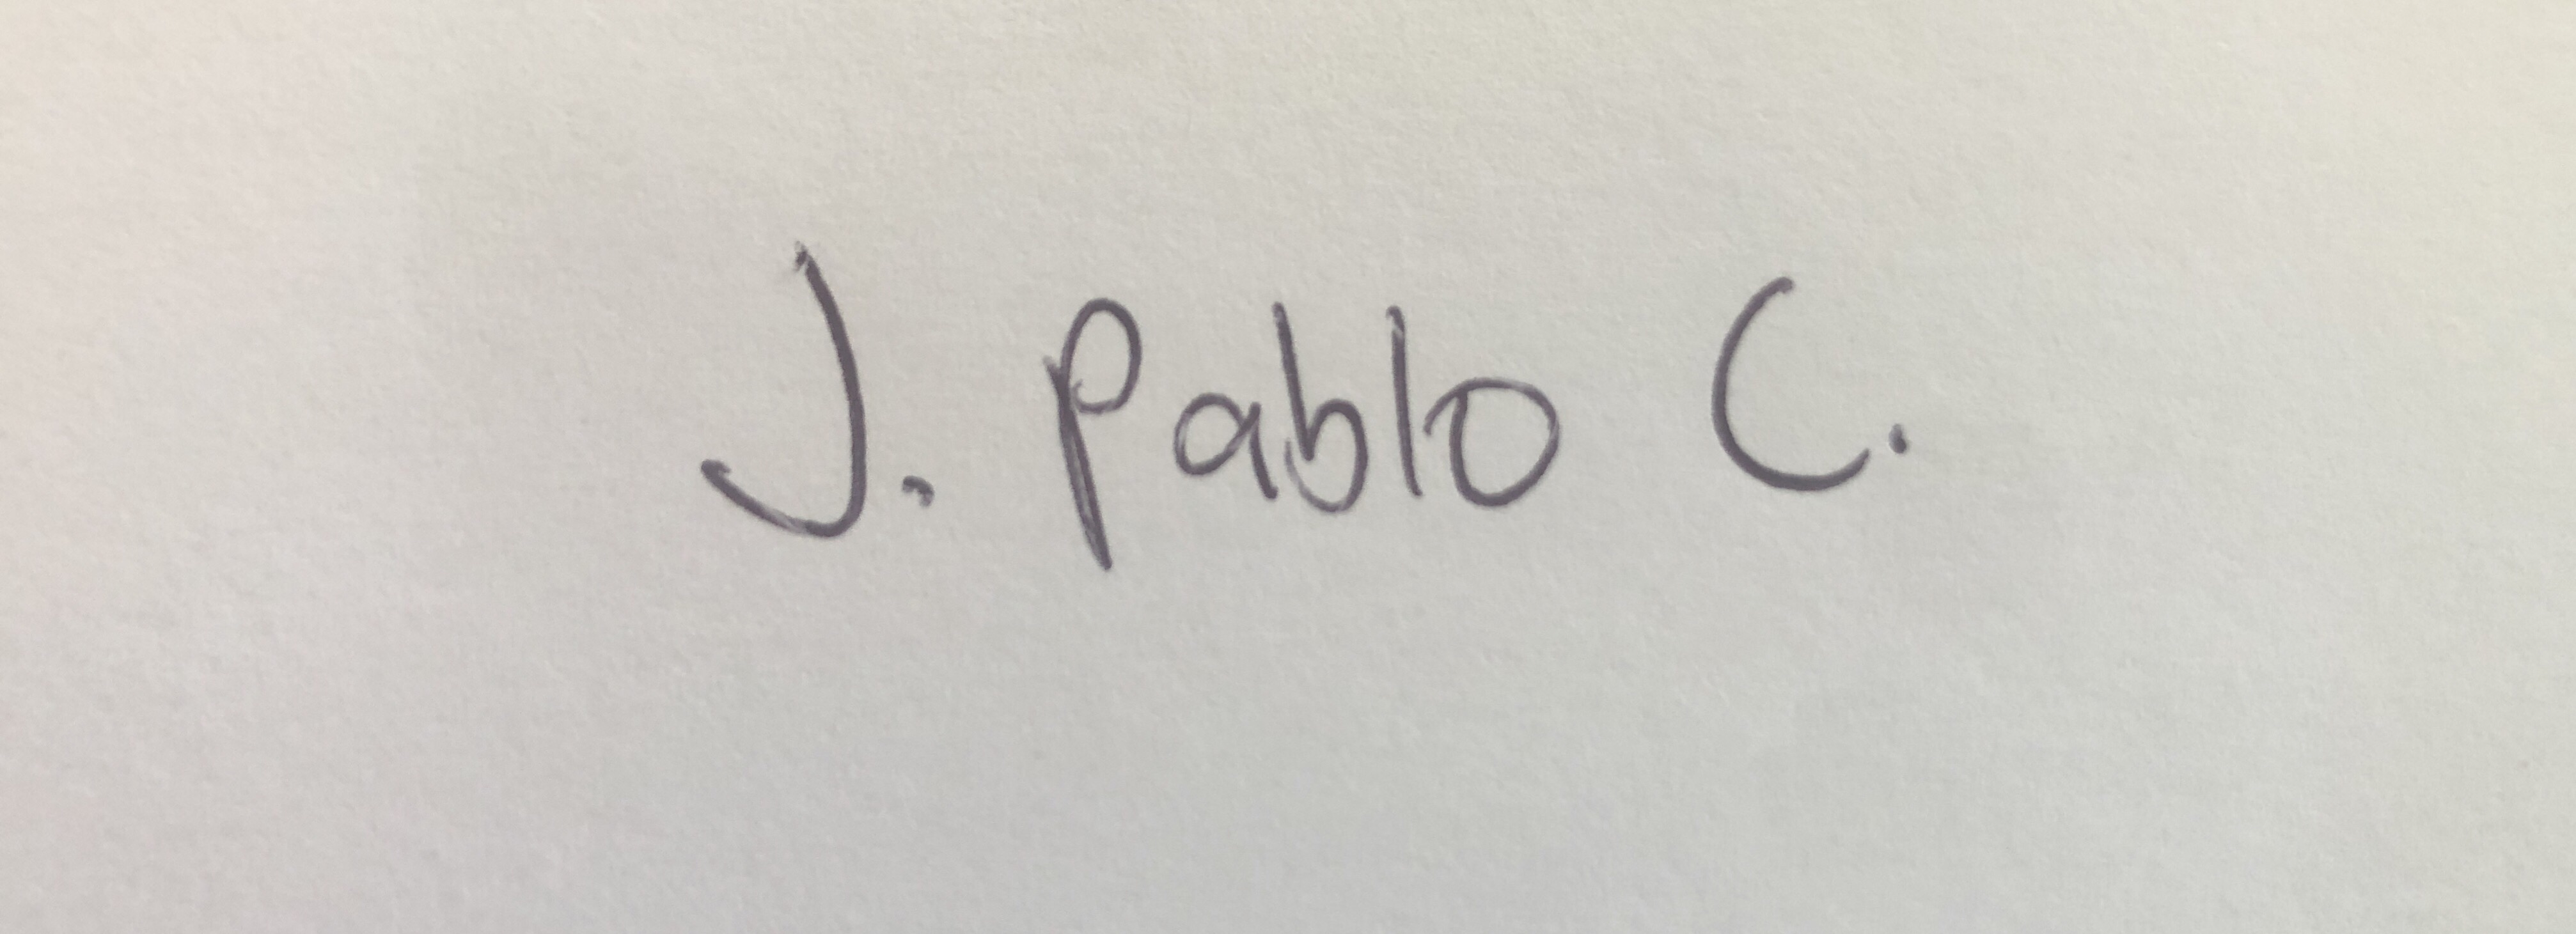 J. Pablo C.